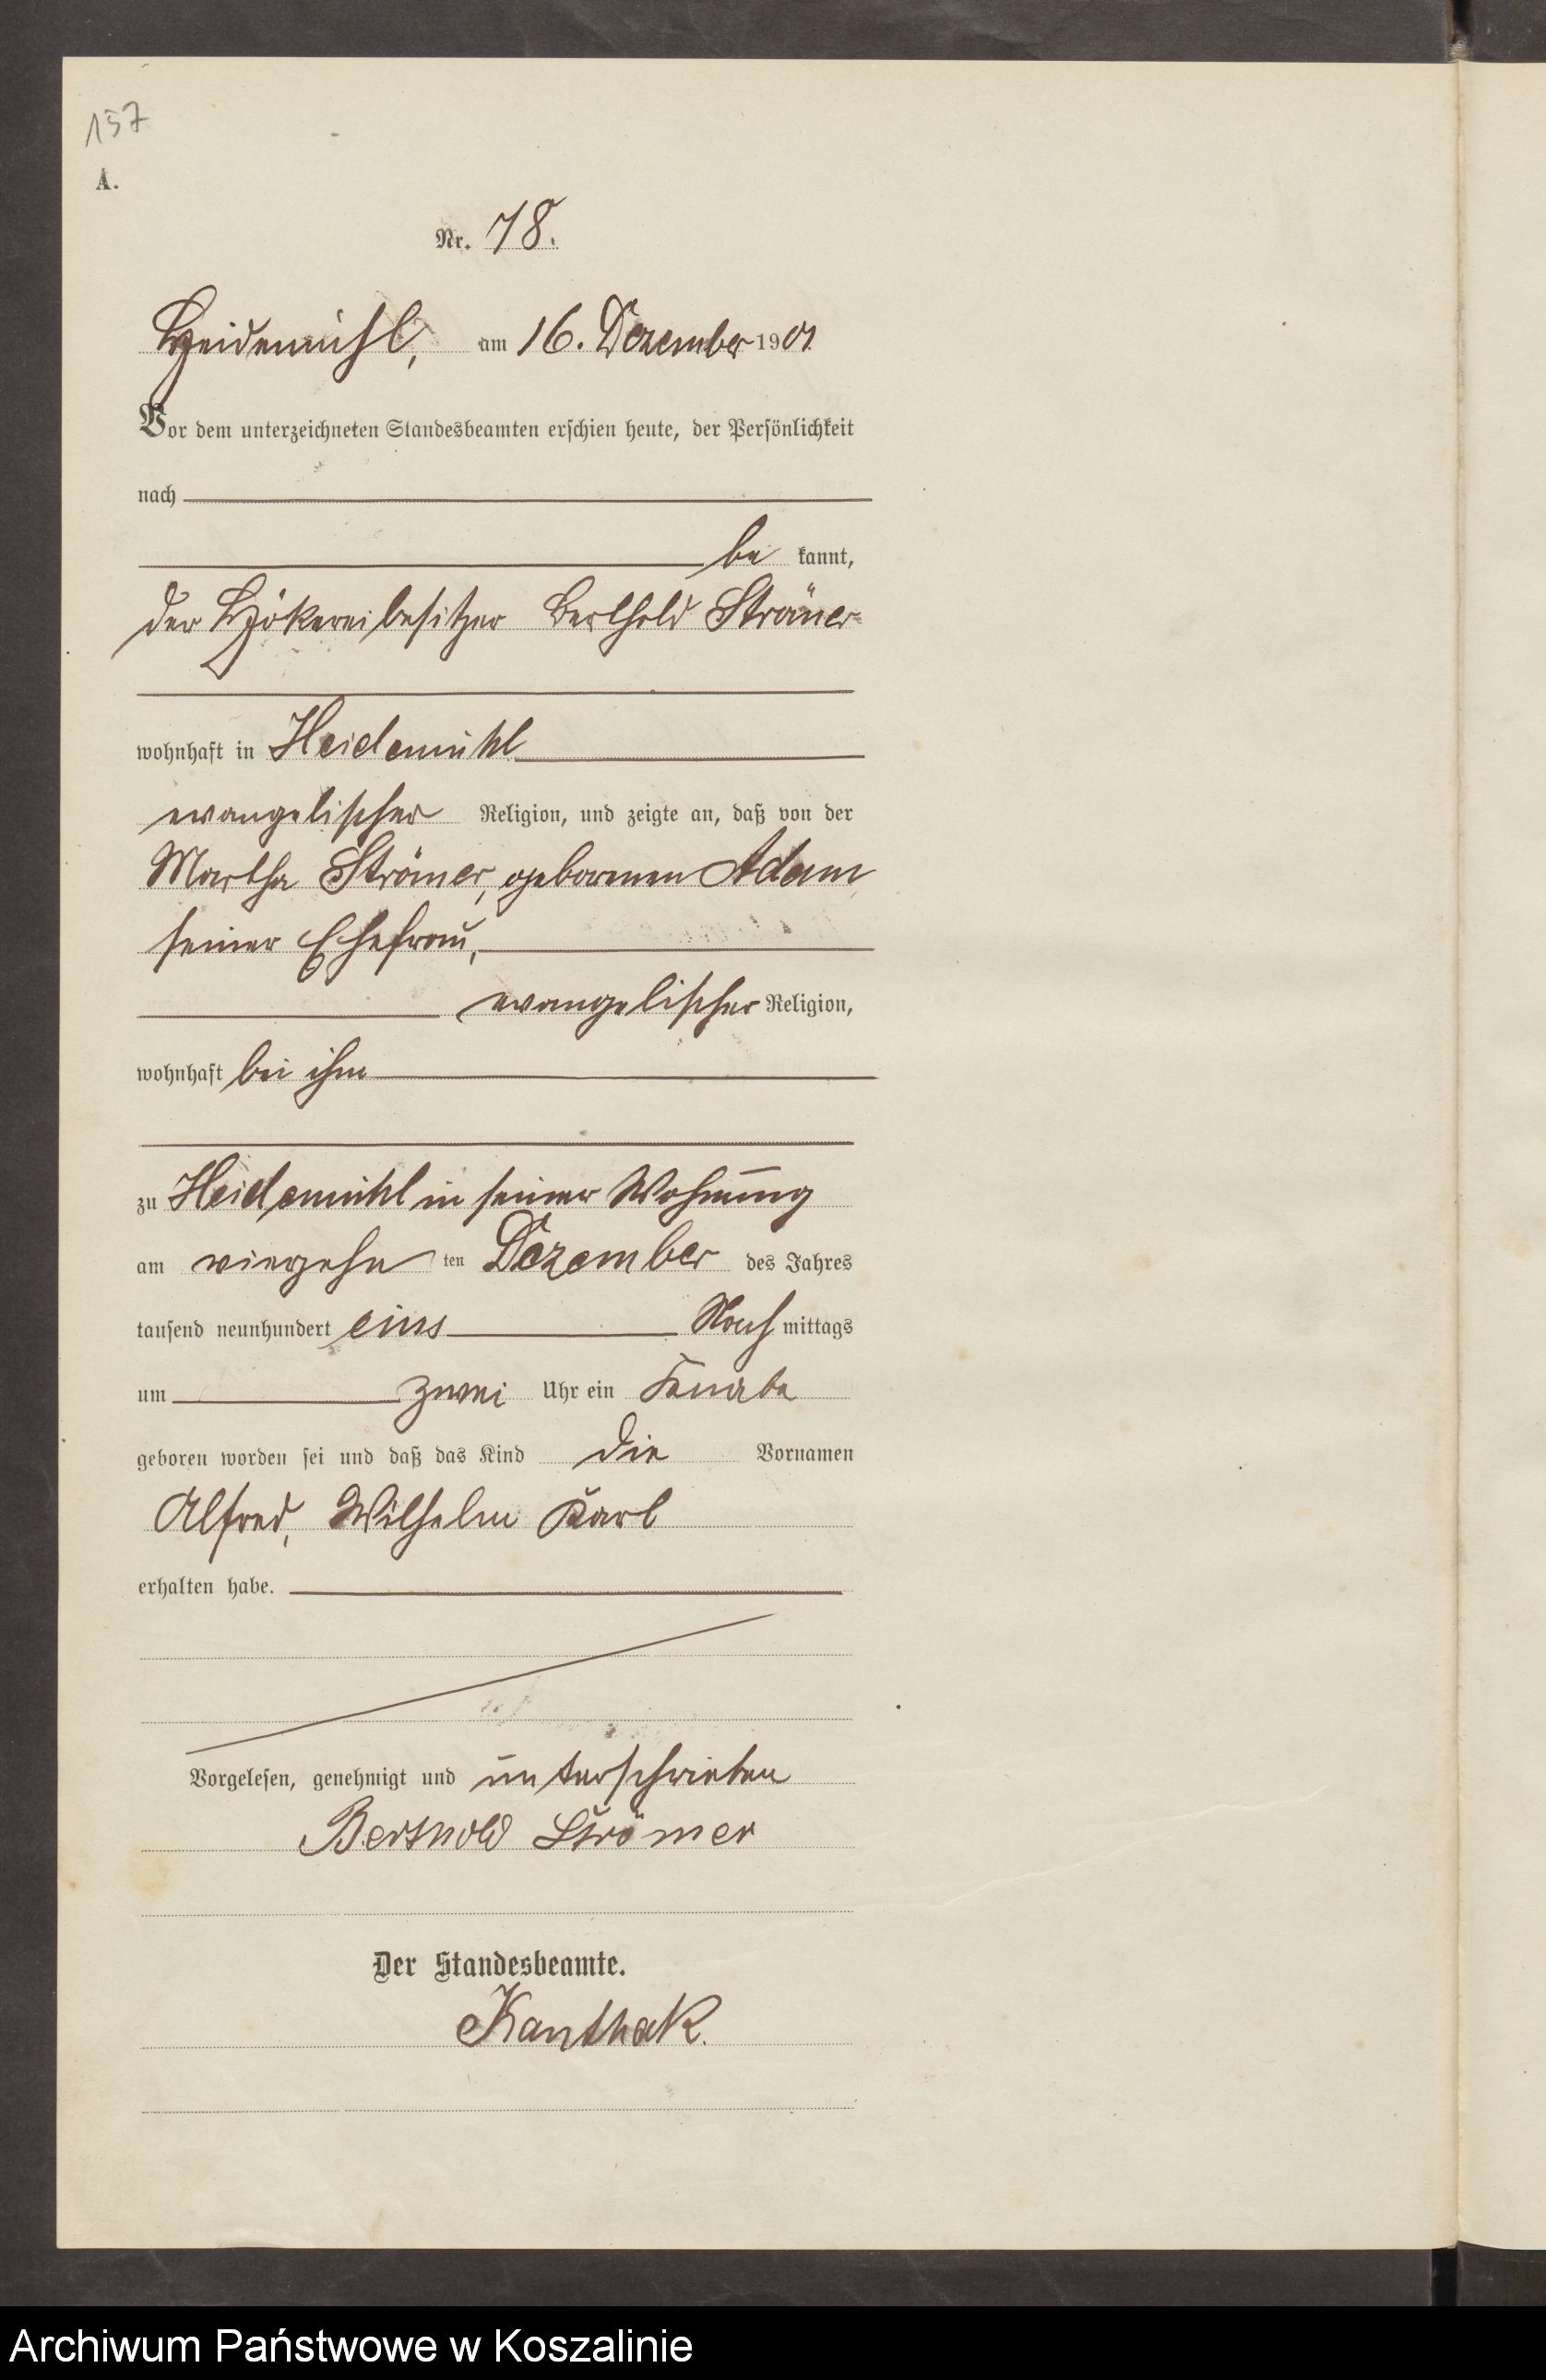 157
A.
Nr. 78.
Heidemühl, am 16. Dezember 1901
Vor dem unterzeichneten Standesbeamten erschien heute, der Persönlichkeit
nach
be kannt,
der Hökereibesitzer Berthold Strömer
wohnhaft in Heidemühl
evangelischer Religion, und zeigte an, daß von der
Martha Strömer, geborenen Adam
seiner Ehefrau,
evangelischer Religion,
wohnhaft bei ihm
zu Heidemühl in seiner Wohnung
am vierzehn ten Dezember des Jahres
tausend neunhundert eins Nach mittags
um zwei Uhr ein Knabe
geboren worden sei und daß das Kind die Vornamen
Alfred, Wilhelm Karl
erhalten habe.
Vorgelesen, genehmigt und unterschrieben
Berthold Strömer
Der Standesbeamte.
Kanthak.
Archiwum Państwowe w Koszalinie